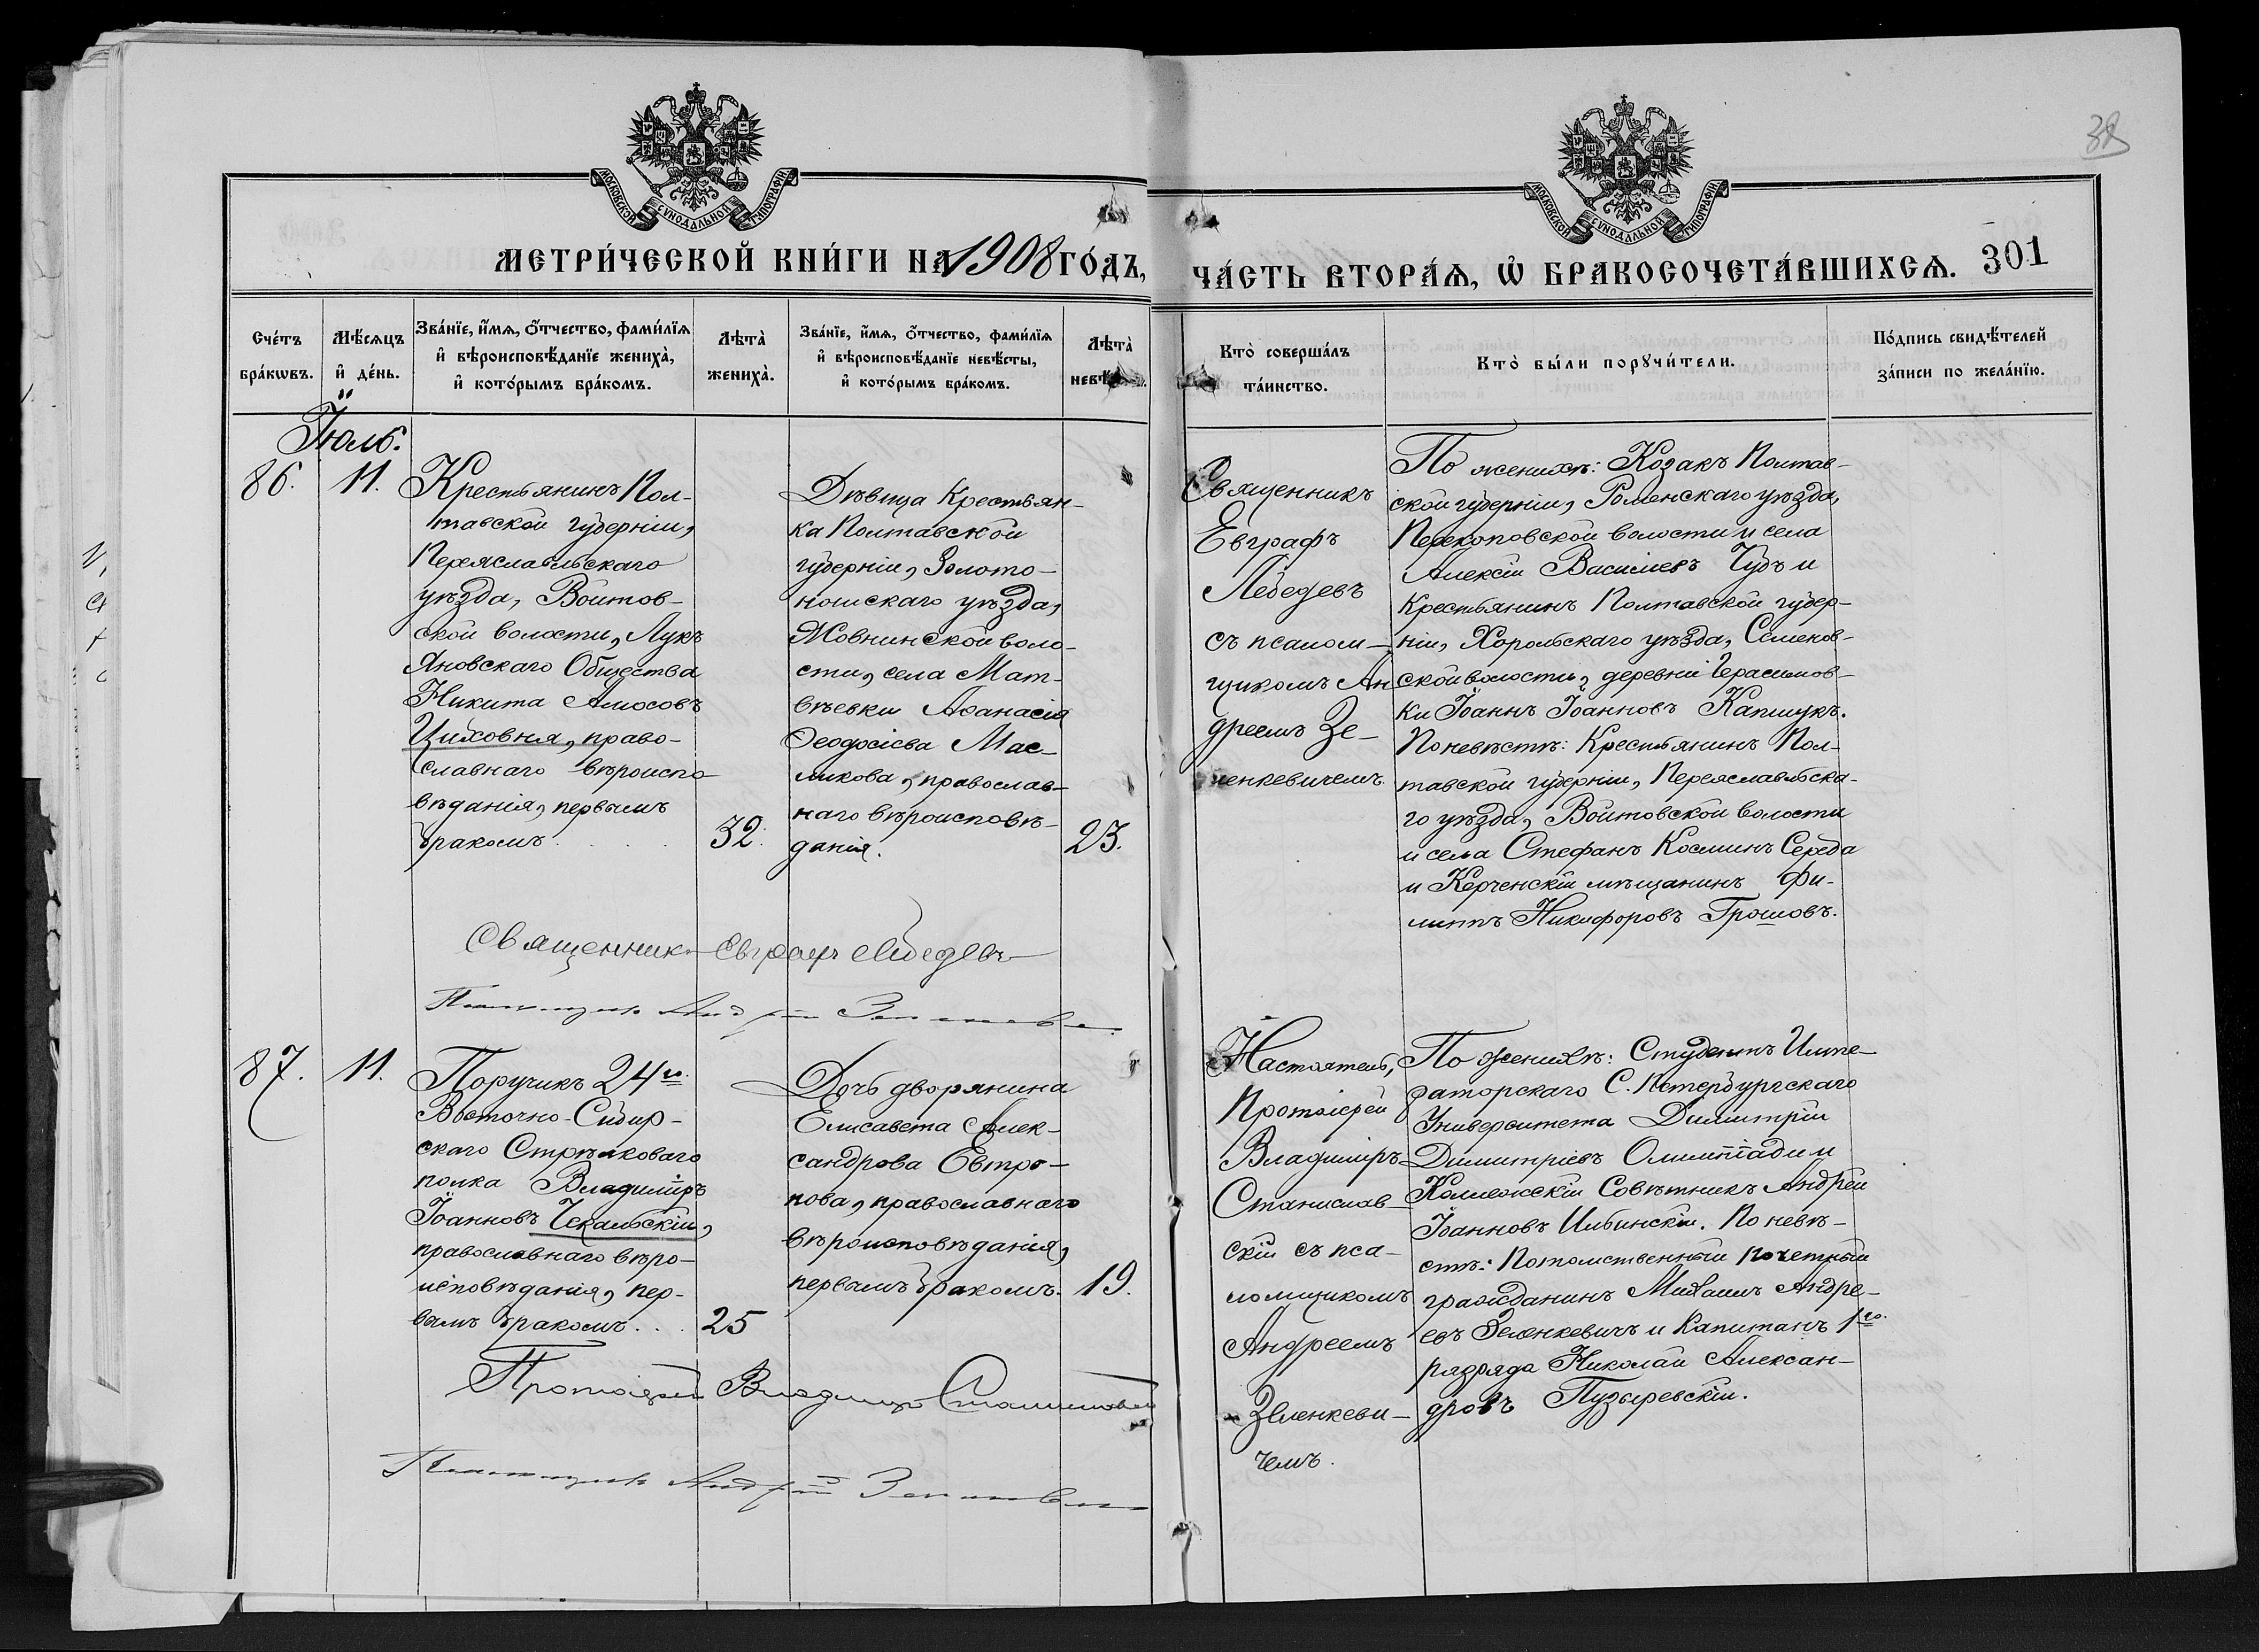 38
МОСКОВСКОЙ СѴНОДАЛЬНОЙ ТИПОГРАФІИ
МОСКОВСКОЙ СѴНОДАЛЬНОЙ ТИПОГРАФІИ
МЕТРИ́ЧЕСКОЙ КНИ́ГИ НА 1908 ГО́ДЪ,
ЧА́СТЬ ВТОРА́Ѧ, Ѽ БРАКОСОЧЕТА́ВШИХСѦ. 301
Сче́тъ
бра́кѡвъ.
Мѣ́сѧцъ
и҆ де́нь.
Зва́нїе, и҆́мѧ, ѻ҆́тчество, фами́лїѧ
и҆ вѣроисповѣ́данїе жениха̀,
и҆ кото́рымъ бра́комъ.
Лѣта̀
жениха̀.
Зва́нїе, и҆́мѧ, ѻ҆́тчество, фами́лїѧ
и҆ вѣроисповѣ́данїе невѣ́сты,
и҆ кото́рымъ бра́комъ.
Лѣта̀
Кто̀ соверша́лъ
та́инство.
Кто̀ бы́ли порꙋчи́тели.
По́дпись свидѣ́телей
за́писи по жела́нїю.
Іюль.
86.
11.
Крестьянинъ Пол-
тавской губерніи,
Переяславльскаго
уѣзда, Войтов-
ской волости, Лукъ
Яновскаго Общества
Никита Амосовъ
Циховня, право-
славнаго вѣроиспо-
вѣданія, первымъ
бракомъ
32.
Дѣвица Крестьян-
ка Полтавской
губерніи, Золото-
ношскаго уѣзда,
Жовнинской воло-
сти, села Мат-
вѣевки Аѳанасія
Ѳеодосіева Мас-
ликова, православ-
наго вѣроисповѣ-
данія.
23.
Священникъ
Евграфъ
Лебедевъ
съ псалом-
щикомъ Ан
дреемъ Зе-
ленкевичемъ.
По женихѣ: Козакъ Полтав-
ской губерніи, Роменскаго уѣзда,
Перекоповской волости и села
Алексій Василіевъ Чудъ и
Крестьянинъ Полтавской губер-
ніи, Хорольскаго уѣзда, Семенов-
ской волости, деревни Герасимов-
ки Іоаннъ Іоанновъ Капшукъ.
По невѣстѣ: Крестьянинъ Пол-
тавской губерніи, Переяславльска-
го уѣзда, Войтовской волости
и села Стефанъ Косминъ Середа
и Керченскій мѣщанинъ Фи-
липпъ Никифоровъ Грошовъ.
Священникъ Евграфъ Лебедевъ
Псаломщикъ Андрей Зеленкевичъ
87.
11.
Поручикъ 24го
Восточно-Сибир-
скаго Стрѣлковаго
полка Владиміръ
Іоанновъ Чекальскій,
православнаго вѣро-
исповѣданія, пер-
вымъ бракомъ...
25
Дочь дворянина
Елисавета Алек-
сандрова Евтро-
пова, православнаго
вѣроисповѣданія,
первымъ бракомъ.
19.
Настоятель,
Протоіерей
Владиміръ
Станислав-
скій съ пса-
ломщикомъ
Андреемъ
Зеленкеви-
чемъ.
По женихѣ: Студентъ Импе-
раторскаго С. Петербургскаго
Университета Димитрій
Димитріевъ Олимпіади и
Коллежскій Совѣтникъ Андрей
Іоанновъ Ильинскій. По невѣ-
стѣ: Потомственный почетный
гражданинъ Михаилъ Андре-
евъ Зеленкевичъ и Капитанъ 1го.
разряда Николай Алексан-
дровъ Пузыревскій.
Протоіерей Владиміръ Станиславскій
Псаломщикъ Андрей Зеленкевичъ